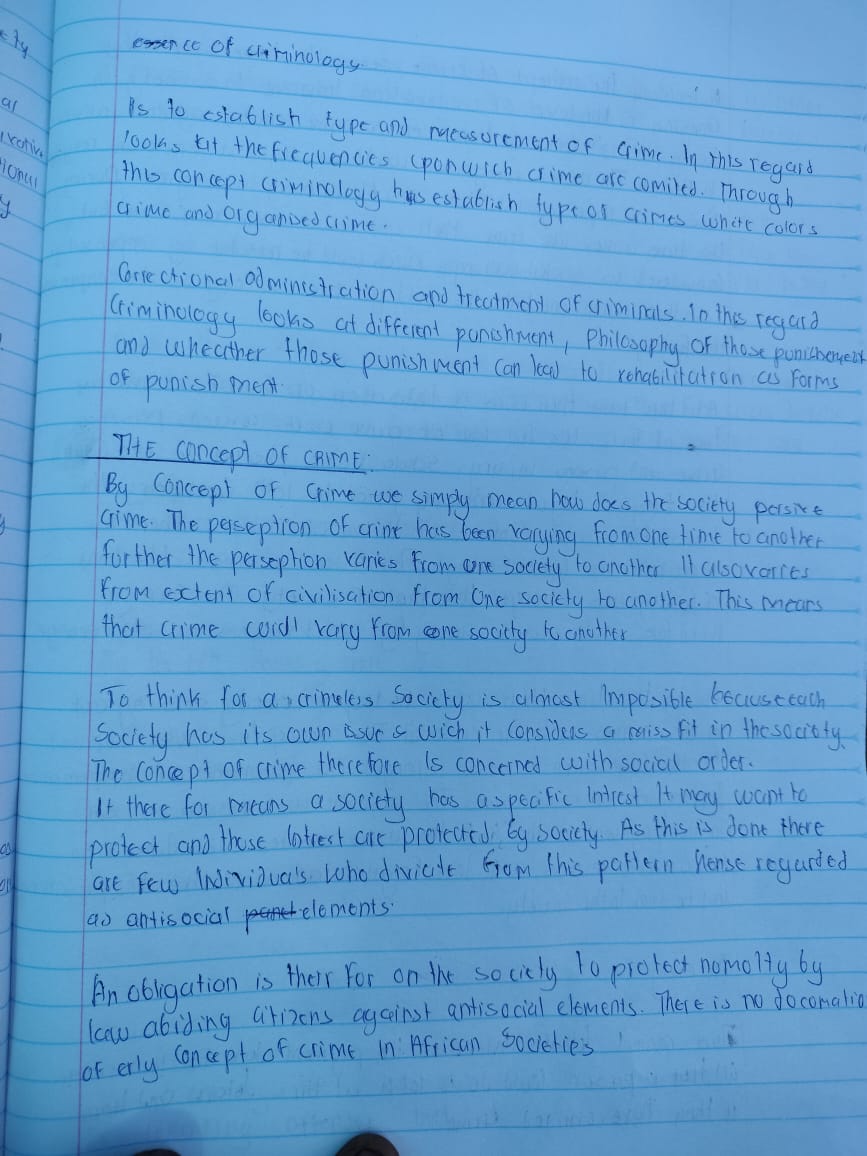 essence of criminology
Is to establish type and measurement of crime. In this regard
looks at the frequencies upon wich crime are comited. Through
this concept criminology has establish type of crimes white colors
crime and organised crime.
Correctional administration and treatment of criminals. In this regard
Criminology looks at different punishment, Philosophy of those punishement
and wheather those punishment can lead to rehabilitation as forms
of punishment.
THE concept OF CRIME:
By Concept of Crime we simply mean how does the society persive
Crime. The perseption of crime has been varying from one time to another
further the perseption varies from one society to another It also varies
from extent of civilisation from one society to another. This means
that crime could vary from one society to another
To think for a crimeless Society is almost Imposible because each
Society has its own issues wich it considers a missfit in the society.
The concept of crime therefore is concerned with social order.
It there for means a society has a specific Intrest It may want to
protect and those Intrest are protected by society. As this is done there
are few Individuals who diviate from this pattern hense regarded
as antisocial elements.
An obligation is their for on the society to protect nomolty by
law abiding citizens against antisocial elements. There is no
of erly Concept of crime in African Societies